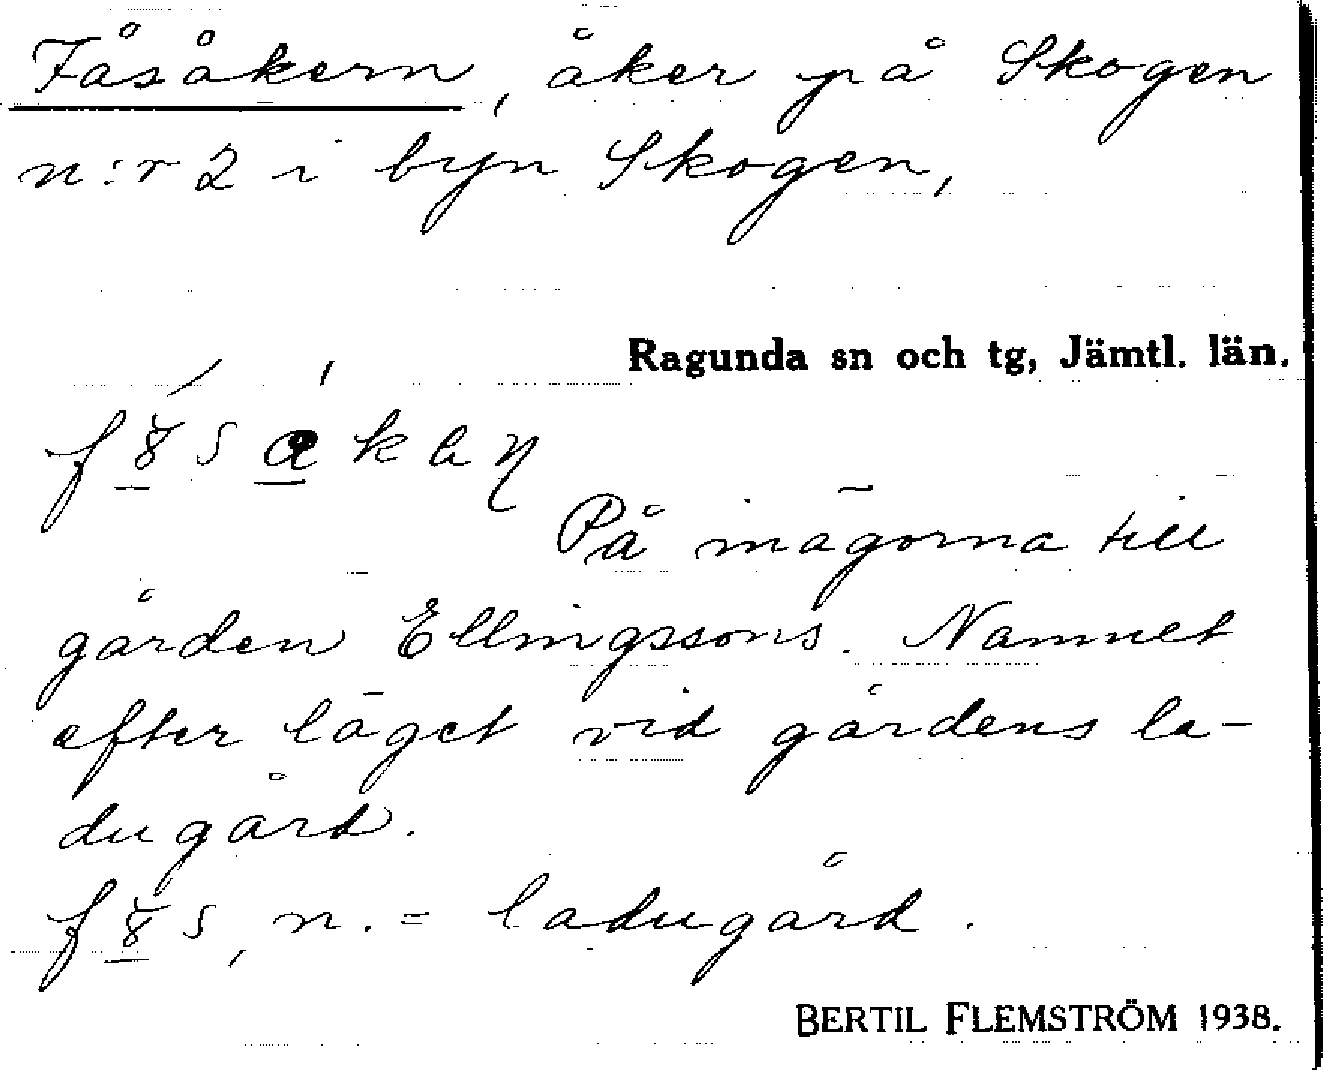 Fåsåkern, åker på Skogen
n:r 2 i byn Skogen,
Ragunda sn och tg, Jämtl. län.
På inägorna till
gården Ellingssons. Namnet
efter läget vid gårdens la-
dugård.
n. = ladugård.
BERTIL FLEMSTRÖM 1938.